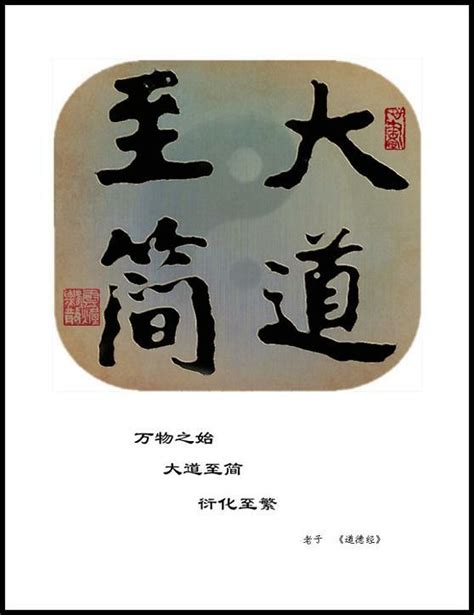 大道
至简
万物之始
大道至简
衍化至繁
老子 《道德经》